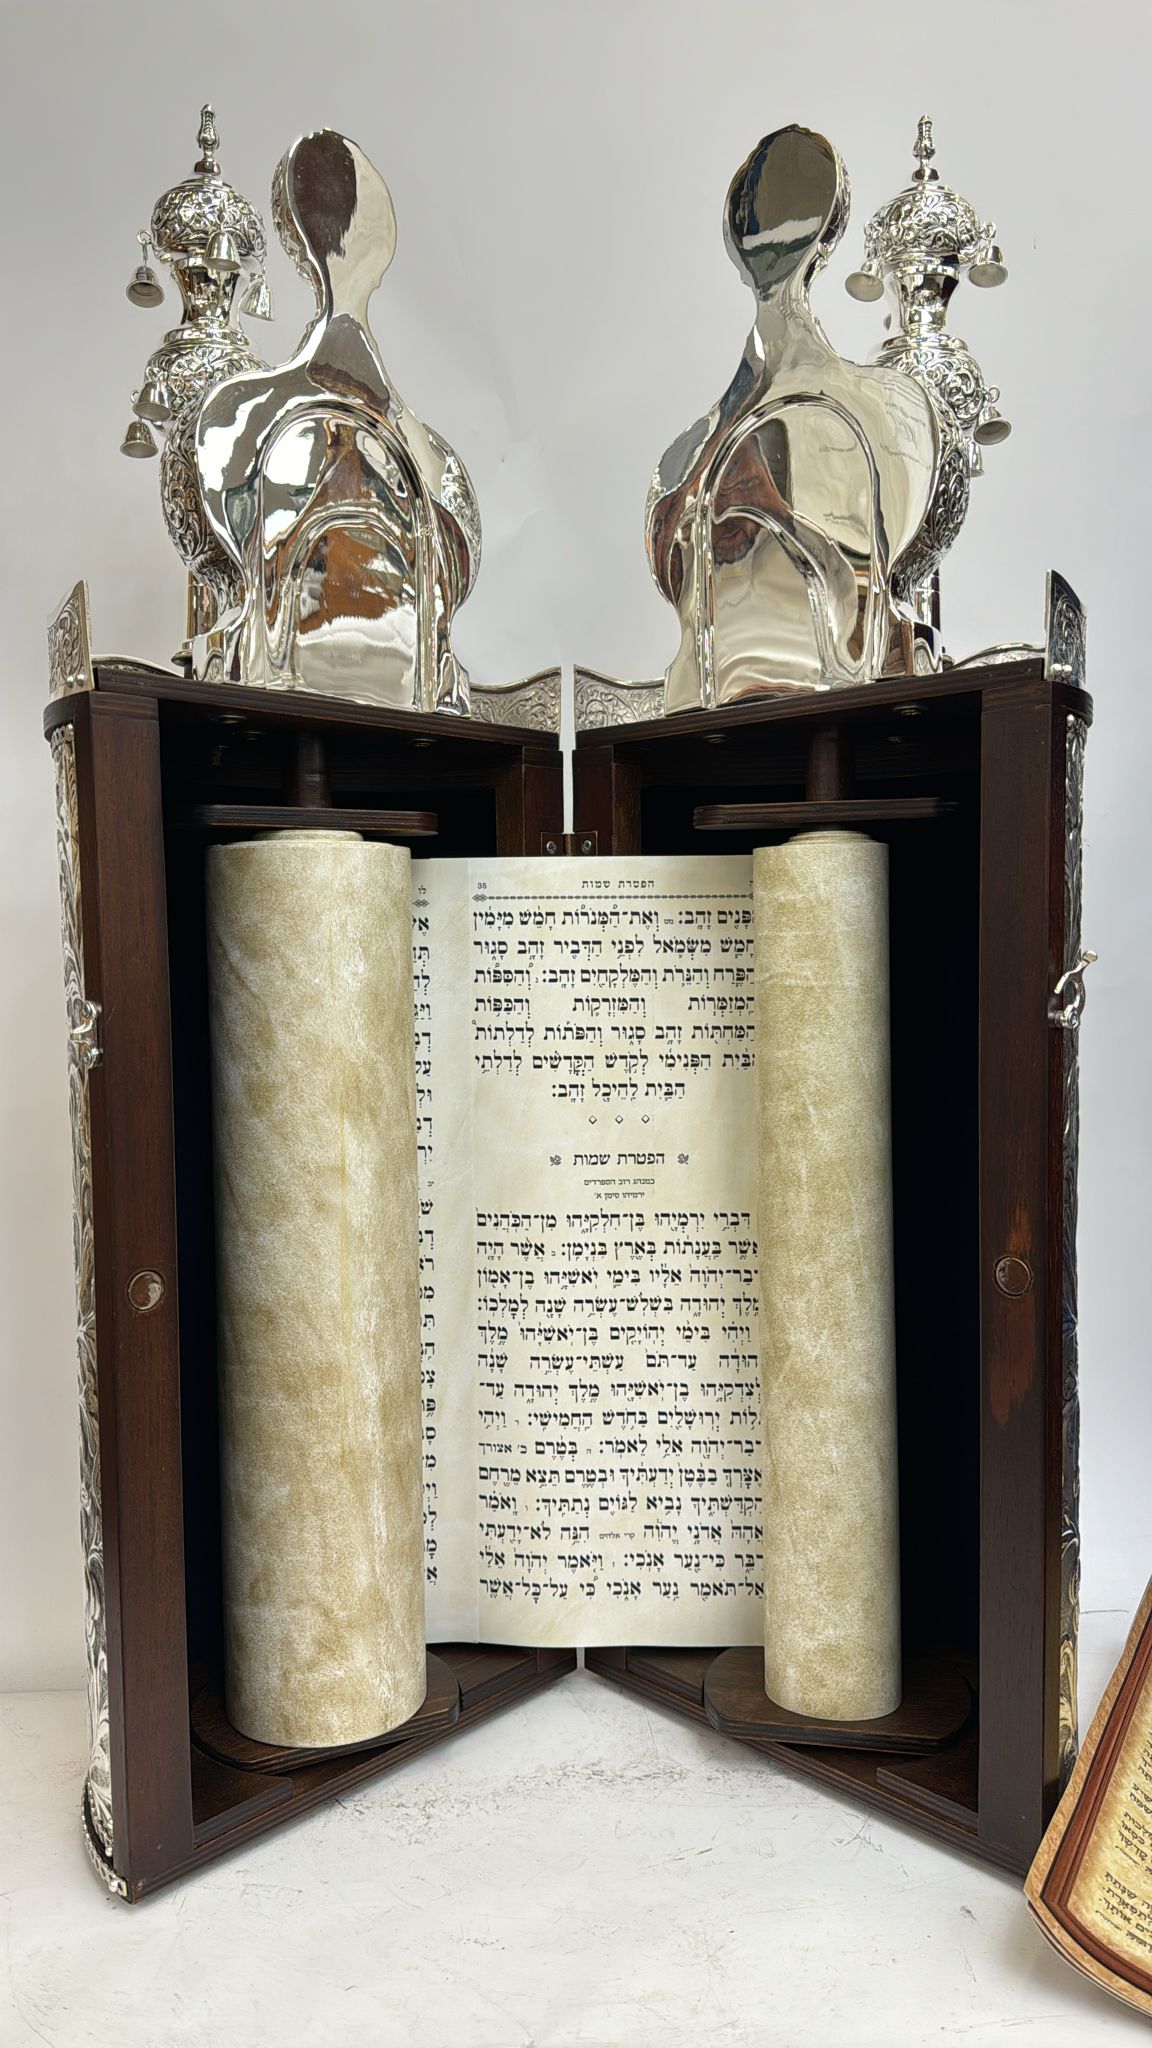 35 הפטרת שמות
זָהָב: מט וְאֶת־הַמְּנֹרוֹת חָמֵשׁ מִיָּמִין
מִשְּׂמֹאל לִפְנֵי הַדְּבִיר זָהָב סָגוּר
וְהַנֵּרֹת וְהַמֶּלְקָחַיִם זָהָב: נ וְהַסִּפּוֹת
וְהַמְזַמְּרוֹת וְהַמִּזְרָקוֹת וְהַכַּפּוֹת
וְהַמַּחְתּוֹת זָהָב סָגוּר וְהַפֹּתוֹת לְדַלְתוֹת
הַבַּיִת הַפְּנִימִי לְקֹדֶשׁ הַקֳּדָשִׁים לְדַלְתֵי
הַבַּיִת לַהֵיכָל זָהָב:
הפטרת שמות
כמנהג רוב הספרדים
ירמיהו סימן א'
דִּבְרֵי יִרְמְיָהוּ בֶּן־חִלְקִיָּהוּ מִן־הַכֹּהֲנִים
אֲשֶׁר בַּעֲנָתוֹת בְּאֶרֶץ בִּנְיָמִן: ב אֲשֶׁר הָיָה
דְבַר־יְהֹוָה אֵלָיו בִּימֵי יֹאשִׁיָּהוּ בֶן־אָמוֹן
מֶלֶךְ יְהוּדָה בִּשְׁלֹשׁ־עֶשְׂרֵה שָׁנָה לְמָלְכוֹ:
וַיְהִי בִּימֵי יְהוֹיָקִים בֶּן־יֹאשִׁיָּהוּ מֶלֶךְ
יְהוּדָה עַד־תֹּם עַשְׁתֵּי־עֶשְׂרֵה שָׁנָה
לְצִדְקִיָּהוּ בֶן־יֹאשִׁיָּהוּ מֶלֶךְ יְהוּדָה עַד־
גְּלוֹת יְרוּשָׁלִַם בַּחֹדֶשׁ הַחֲמִישִׁי: ד וַיְהִי
דְבַר־יְהֹוָה אֵלַי לֵאמֹר: ה בְּטֶרֶם כ' אצורך
אֶצָּרְךָ בַבֶּטֶן יְדַעְתִּיךָ וּבְטֶרֶם תֵּצֵא מֵרֶחֶם
הִקְדַּשְׁתִּיךָ נָבִיא לַגּוֹיִם נְתַתִּיךָ: ו וָאֹמַר
אֲהָהּ אֲדֹנָי יֱהֹוִה קרי אלהים הִנֵּה לֹא־יָדַעְתִּי
דַּבֵּר כִּי־נַעַר אָנֹכִי: ז וַיֹּאמֶר יְהֹוָה אֵלַי
אַל־תֹּאמַר נַעַר אָנֹכִי כִּי עַל־כָּל־אֲשֶׁר